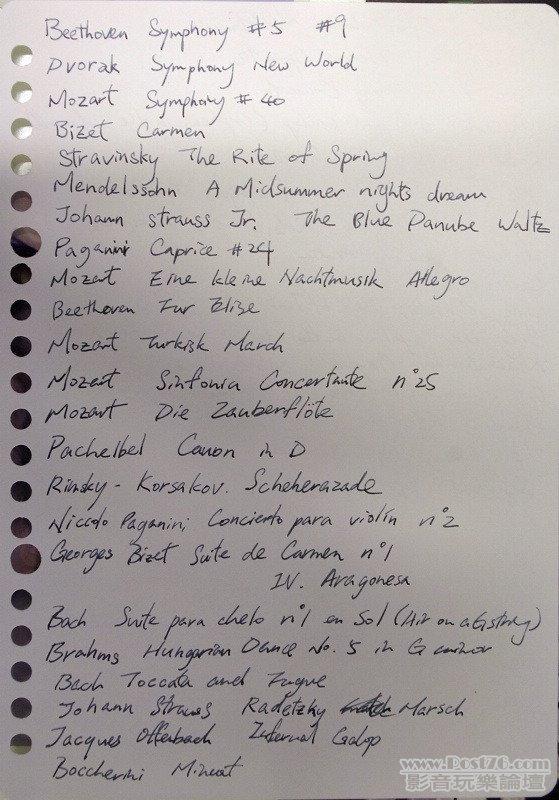 Beethoven Symphony #5 #9
Dvorak Symphony New World
Mozart Symphony #40
Bizet Carmen
Stravinsky The Rite of Spring
Mendelssohn A Midsummer nights dream
Johann Strauss Jr. The Blue Danube Waltz
Paganini Caprice #24
Mozart Eine kleine Nachtmusik Allegro
Beethoven Fur Elise
Mozart Turkish March
Mozart Sinfonia Concertante n°25
Mozart Die Zauberflöte
Pachelbel Canon in D
Rimsky-Korsakov. Scheherazade
Niccolo Paganini Concierto para violín n°2
Georges Bizet Suite de Carmen n°1
IV. Aragonesa
Bach Suite para chelo n°1 en Sol (Air on a G string)
Brahms Hungarian Dance No. 5 in G minor
Bach Toccata and Fugue
Johann Strauss Radetzky Marsch
Jacques Offenbach Infernal Galop
Boccherini Minuet
www.Post76.com
影音玩樂論壇